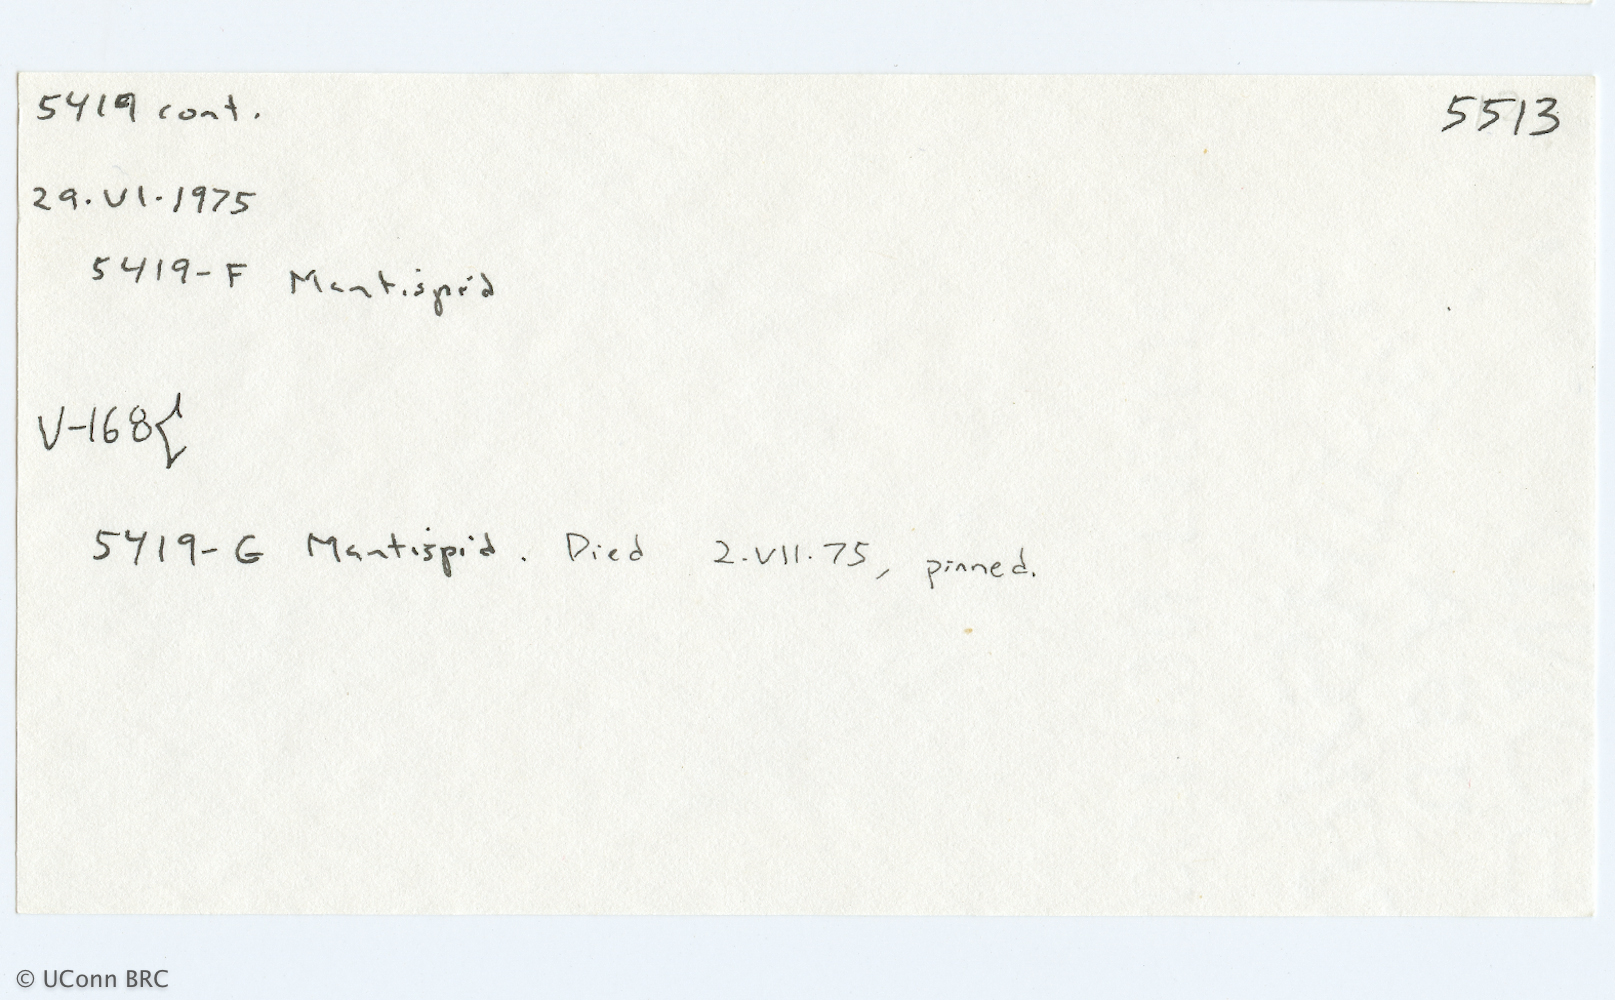 5419 cont.
5513
29.VI.1975
5419-F Mantispid
V-168{
5419-G Mantispid. Died 2.VII.75, pinned.
© UConn BRC